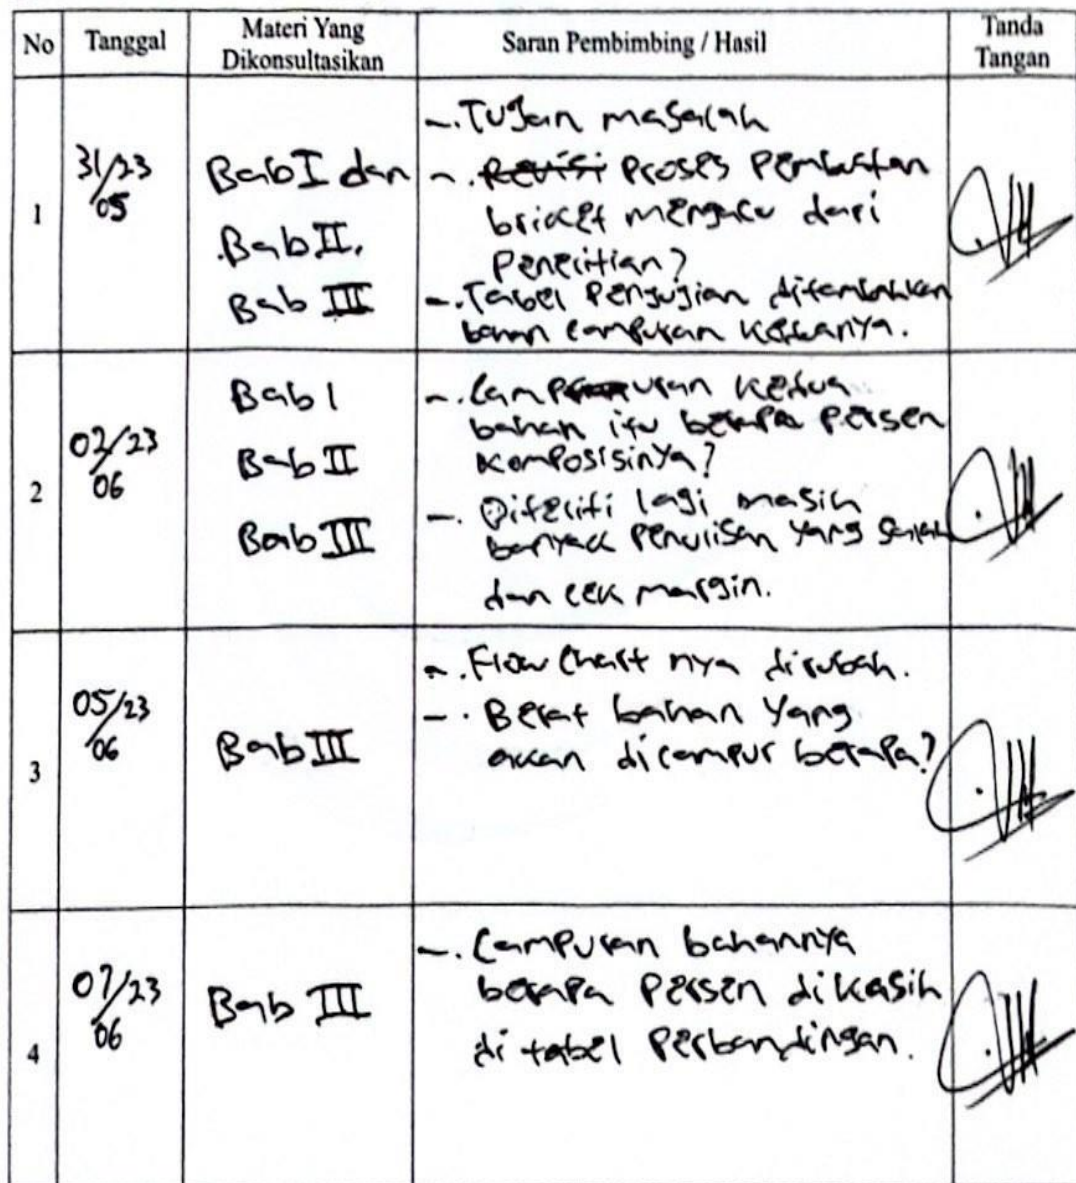 No Tanggal Materi Yang Dikonsultasikan Saran Pembimbing / Hasil Tanda Tangan
1
31/23
05
Bab I dan
Bab II.
Bab III
-. Tujan masalah
-. Revisi Proses Pembuatan
bricket mengacu dari
Penelitian?
-. Tabel Pengujian ditambahkan
bahan campuran keduanya.
2
02/23
06
Bab I
Bab II
Bab III
-. Campuran kedua
bahan itu berapa persen
komposisinya?
-. Diteliti lagi masih
banyack penulisan yang salah
dan cek margin.
3
05/23
06
Bab III
-. Flow Chart nya dirubah.
-. Berat bahan yang
akan dicampur berapa?
4
07/23
06
Bab III
-. Campuran bahannya
berapa persen dikasih
di tabel Perbandingan.